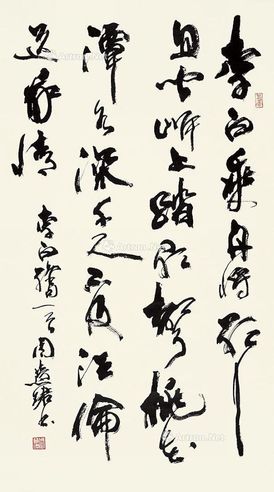 李白乘舟将欲行
忽闻岸上踏歌声桃花
潭水深千尺不及汪伦
送我情 李白赠一首